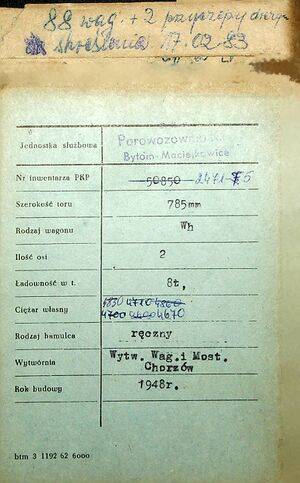 88 wag. + 2 przyczepy
skreślenia 17.02-83
Jednostka służbowa Porowozownia
Bytom-Maciejkowice
Nr inwentarza PKP 50850 2471
Szerokość toru 785mm
Rodzaj wagonu Wh
Ilość osi 2
Ładowność w t. 8t,
Ciężar własny 4830 4710 4860
4700 4400 4670
Rodzaj hamulca ręczny
Wytwórnia Wytw. Wag.i Most.
Chorzów
Rok budowy 1948r.
btm 3 1192 62 6000